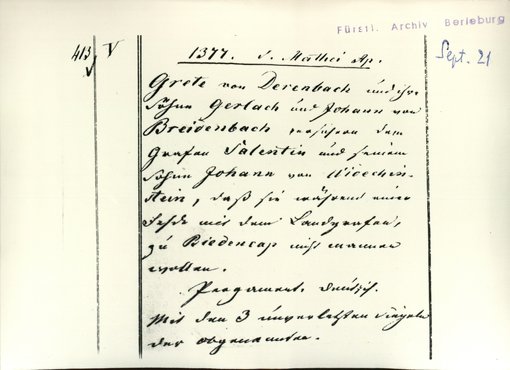 Fürstl. Archiv Berleburg
413 V
Sept. 21
1377. S. Mathei Ap.
Grete von Derenbach und ihre
Söhne Gerlach und Johann von
Breidenbach versichern dem
Grafen Valentin und seinem
Sohne Johann von Witechin-
stein, daß sie während einer
Fehde mit dem Landgrafen,
zu Biedencap nicht mannen
wollen.
Pergament. deutsch.
Mit den 3 unverletzten Siegeln
der obgenannten.